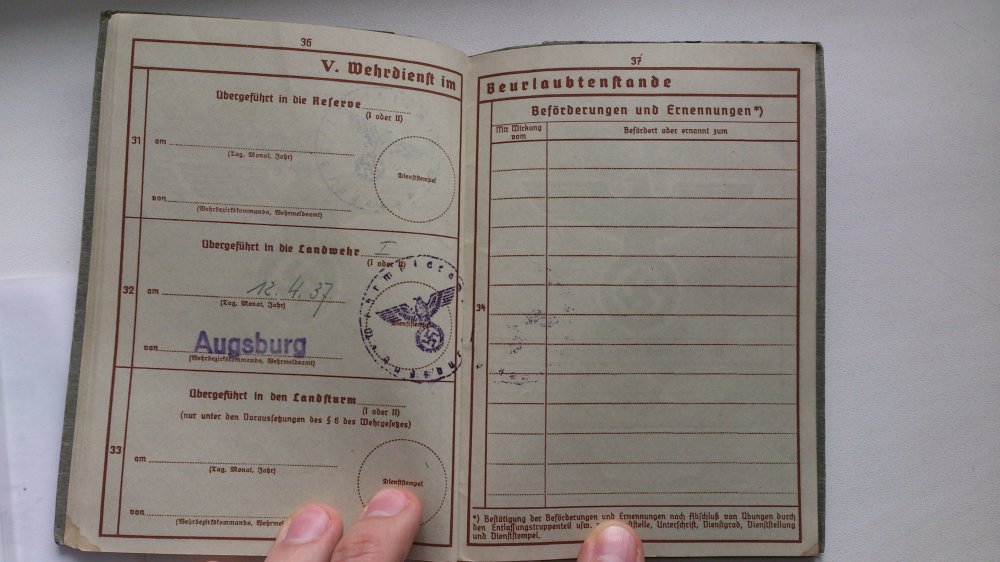 36
V. Wehrdienst im
Übergeführt in die Reserve
(I oder II)
31
am
(Tag, Monat, Jahr)
Dienststempel
von
(Wehrbezirkskommando, Wehrmeldeamt)
Übergeführt in die Landwehr I
(I oder II)
32
am 12.4.37
(Tag, Monat, Jahr)
Dienststempel
von Augsburg
(Wehrbezirkskommando, Wehrmeldeamt)
Übergeführt in den Landsturm
(I oder II)
(nur unter den Voraussetzungen des § 6 des Wehrgesetzes)
33
am
(Tag, Monat, Jahr)
Dienststempel
von
(Wehrbezirkskommando,
37
Beurlaubtenstande
Beförderungen und Ernennungen*)
Mit Wirkung vom
Befördert oder ernannt zum
34
*) Bestätigung der Beförderungen und Ernennungen nach Abschluß von Übungen durch
den Entlassungstruppenteil usw. Unterschrift, Dienstgrad, Dienststellung
und Dienststempel.